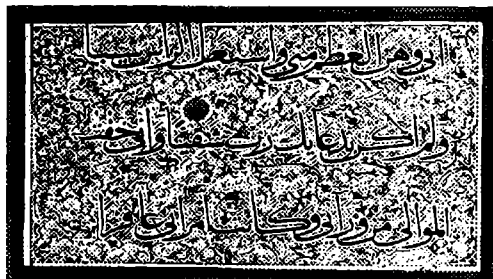 انى وهن العظم منى واشتعل الراس شيبا
ولم اكن بدعائك رب شقيا وانى خفت
الموالى من ورائى وكانت امراتى عاقرا